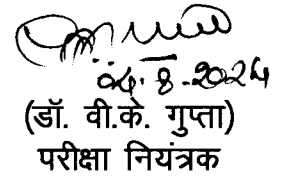 04.8.2024
(डॉ. वी.के. गुप्ता)
परीक्षा नियंत्रक